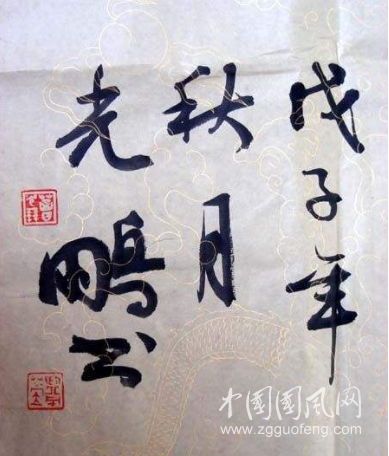 戊子年
秋月
光鵬书
中國國风网
www.zgguofeng.com